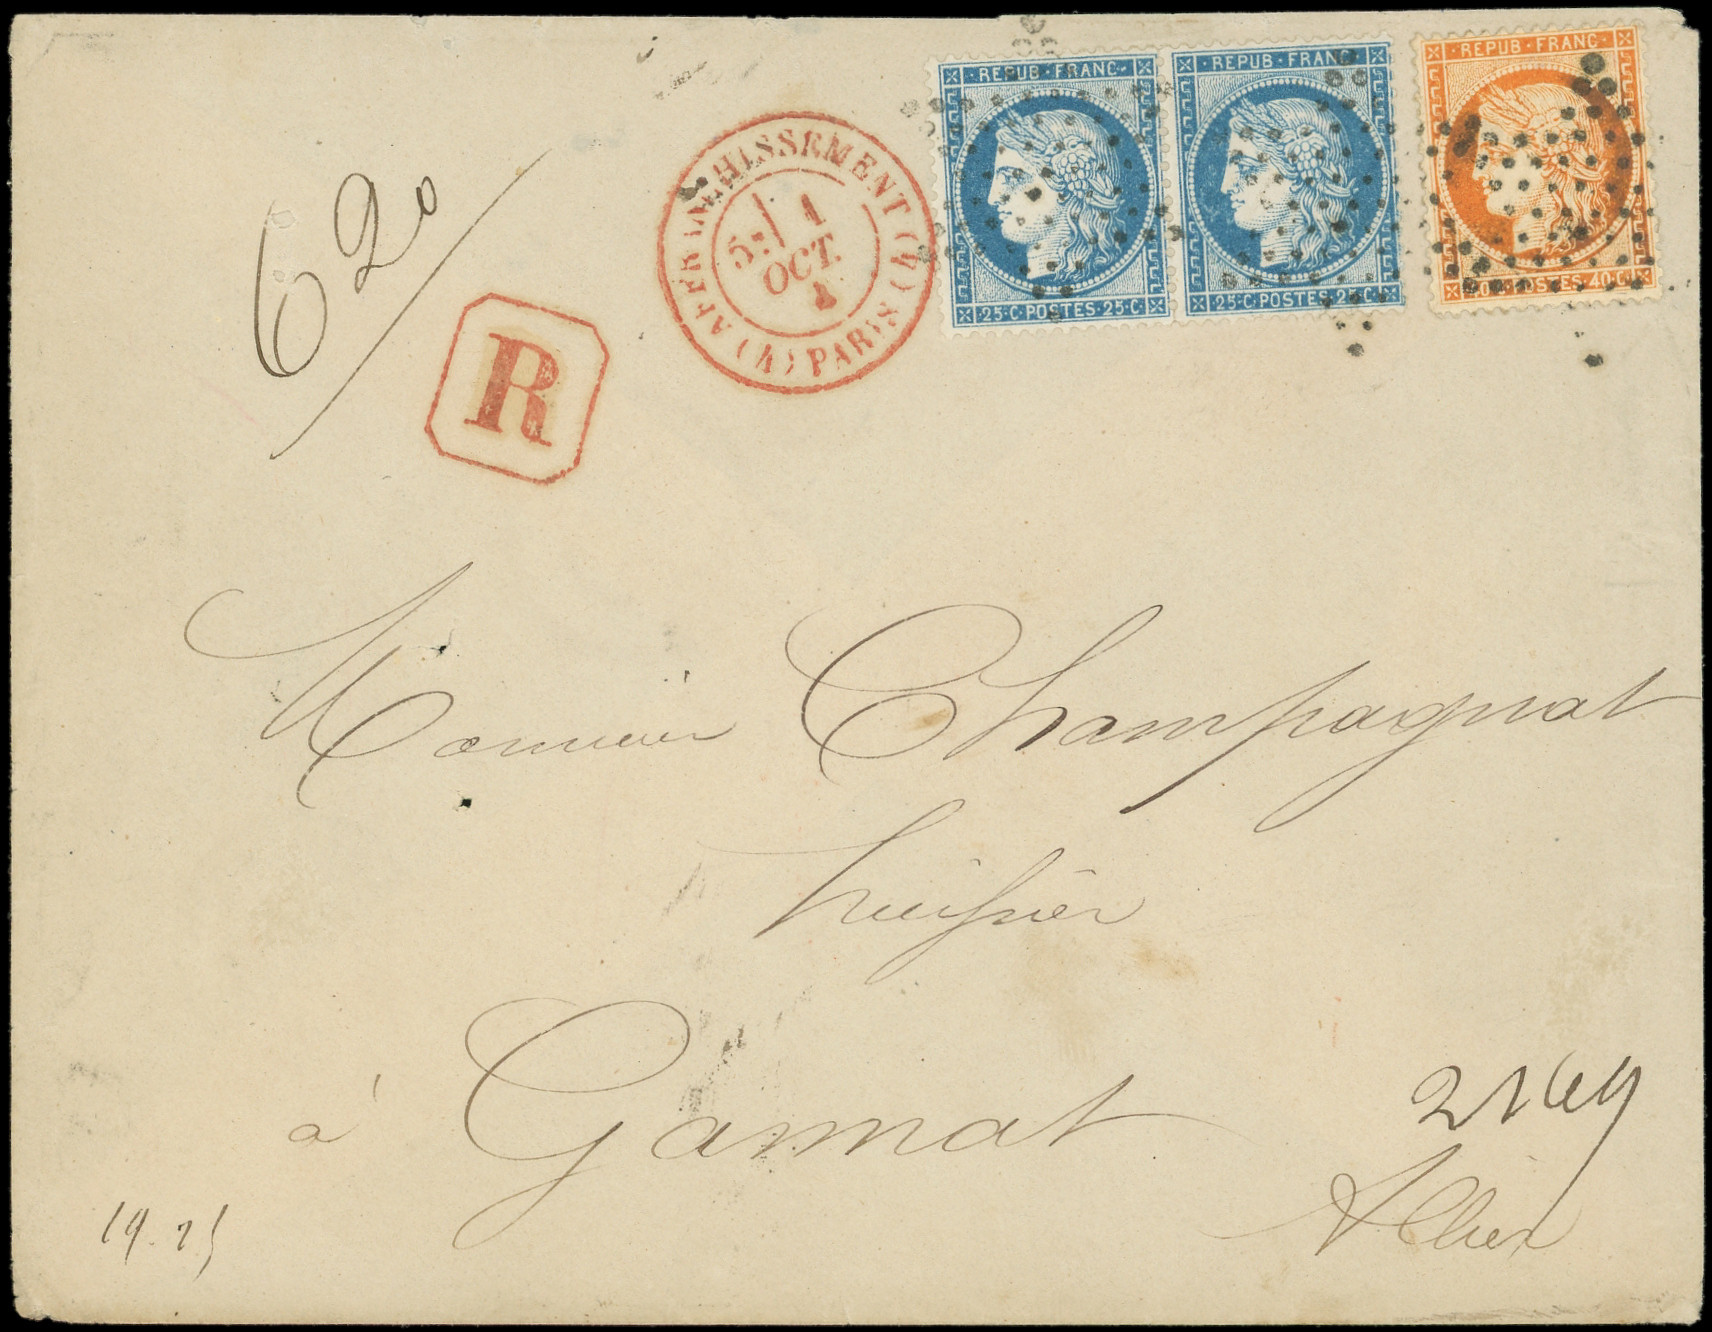 REPUB·FRANC·
25·C·POSTES·25·C·
REPUB·FRANC
25·C·POSTES·25·C·
·REPUB·FRANC·
40·C·POSTES·40·C·
620
AFFRANCHISSEMENT (A) PARIS (A)
5E 1
OCT.
R
Monsieur Champagnat
huissier
à Gannat
2169
Allier